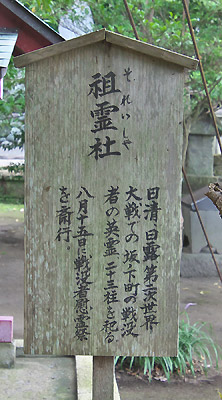 祖霊社
それいしや
日清、日露、第二次世界
大戦での坂下町の戦没
者の英霊二十三柱を祀る
八月十五日に戦没者慰霊祭
を斎行。